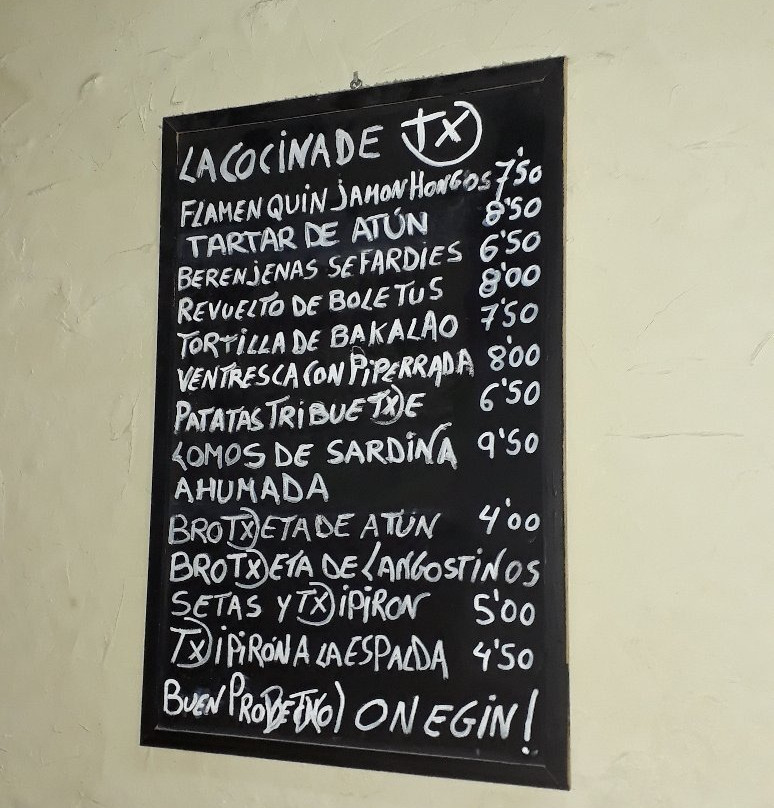 LA COCINA DE TX
FLAMENQUIN JAMON HONGOS 7'50
TARTAR DE ATÚN 8'50
BERENJENAS SEFARDIES 6'50
REVUELTO DE BOLETUS 8'00
TORTILLA DE BAKALAO 7'50
VENTRESCA CON PIPERRADA 8'00
PATATAS TRIBUETXE 6'50
LOMOS DE SARDINA 9'50
AHUMADA
BROTXETA DE ATÚN 4'00
BROTXETA DE LANGOSTINOS
SETAS Y TXIPIRON 5'00
TXIPIRÓN A LA ESPALDA 4'50
BUEN PROBETXO) ON EGIN!